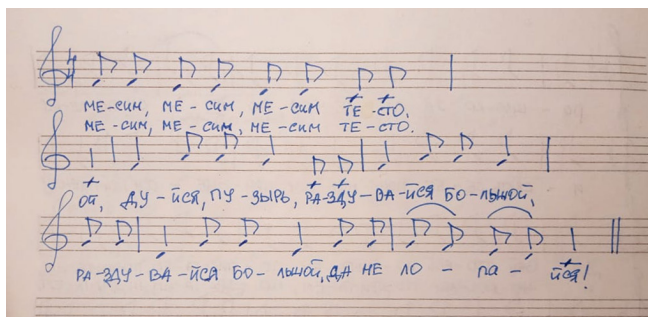 МЕ-СИМ, МЕ - СИМ, МЕ-СИМ ТЕ-СТО.
МЕ-СИМ, МЕ-СИМ, МЕ-СИМ ТЕ-СТО.
ОЙ, ДУ-ЙСЯ, ПУ-ЗЫРЬ, РА-ЗДУ-ВА-ЙСЯ БО-ЛЬШОЙ,
РА-ЗДУ-ВА-ЙСЯ БО-ЛЬШОЙ, ДА НЕ ЛО - ПА - ЙСЯ!